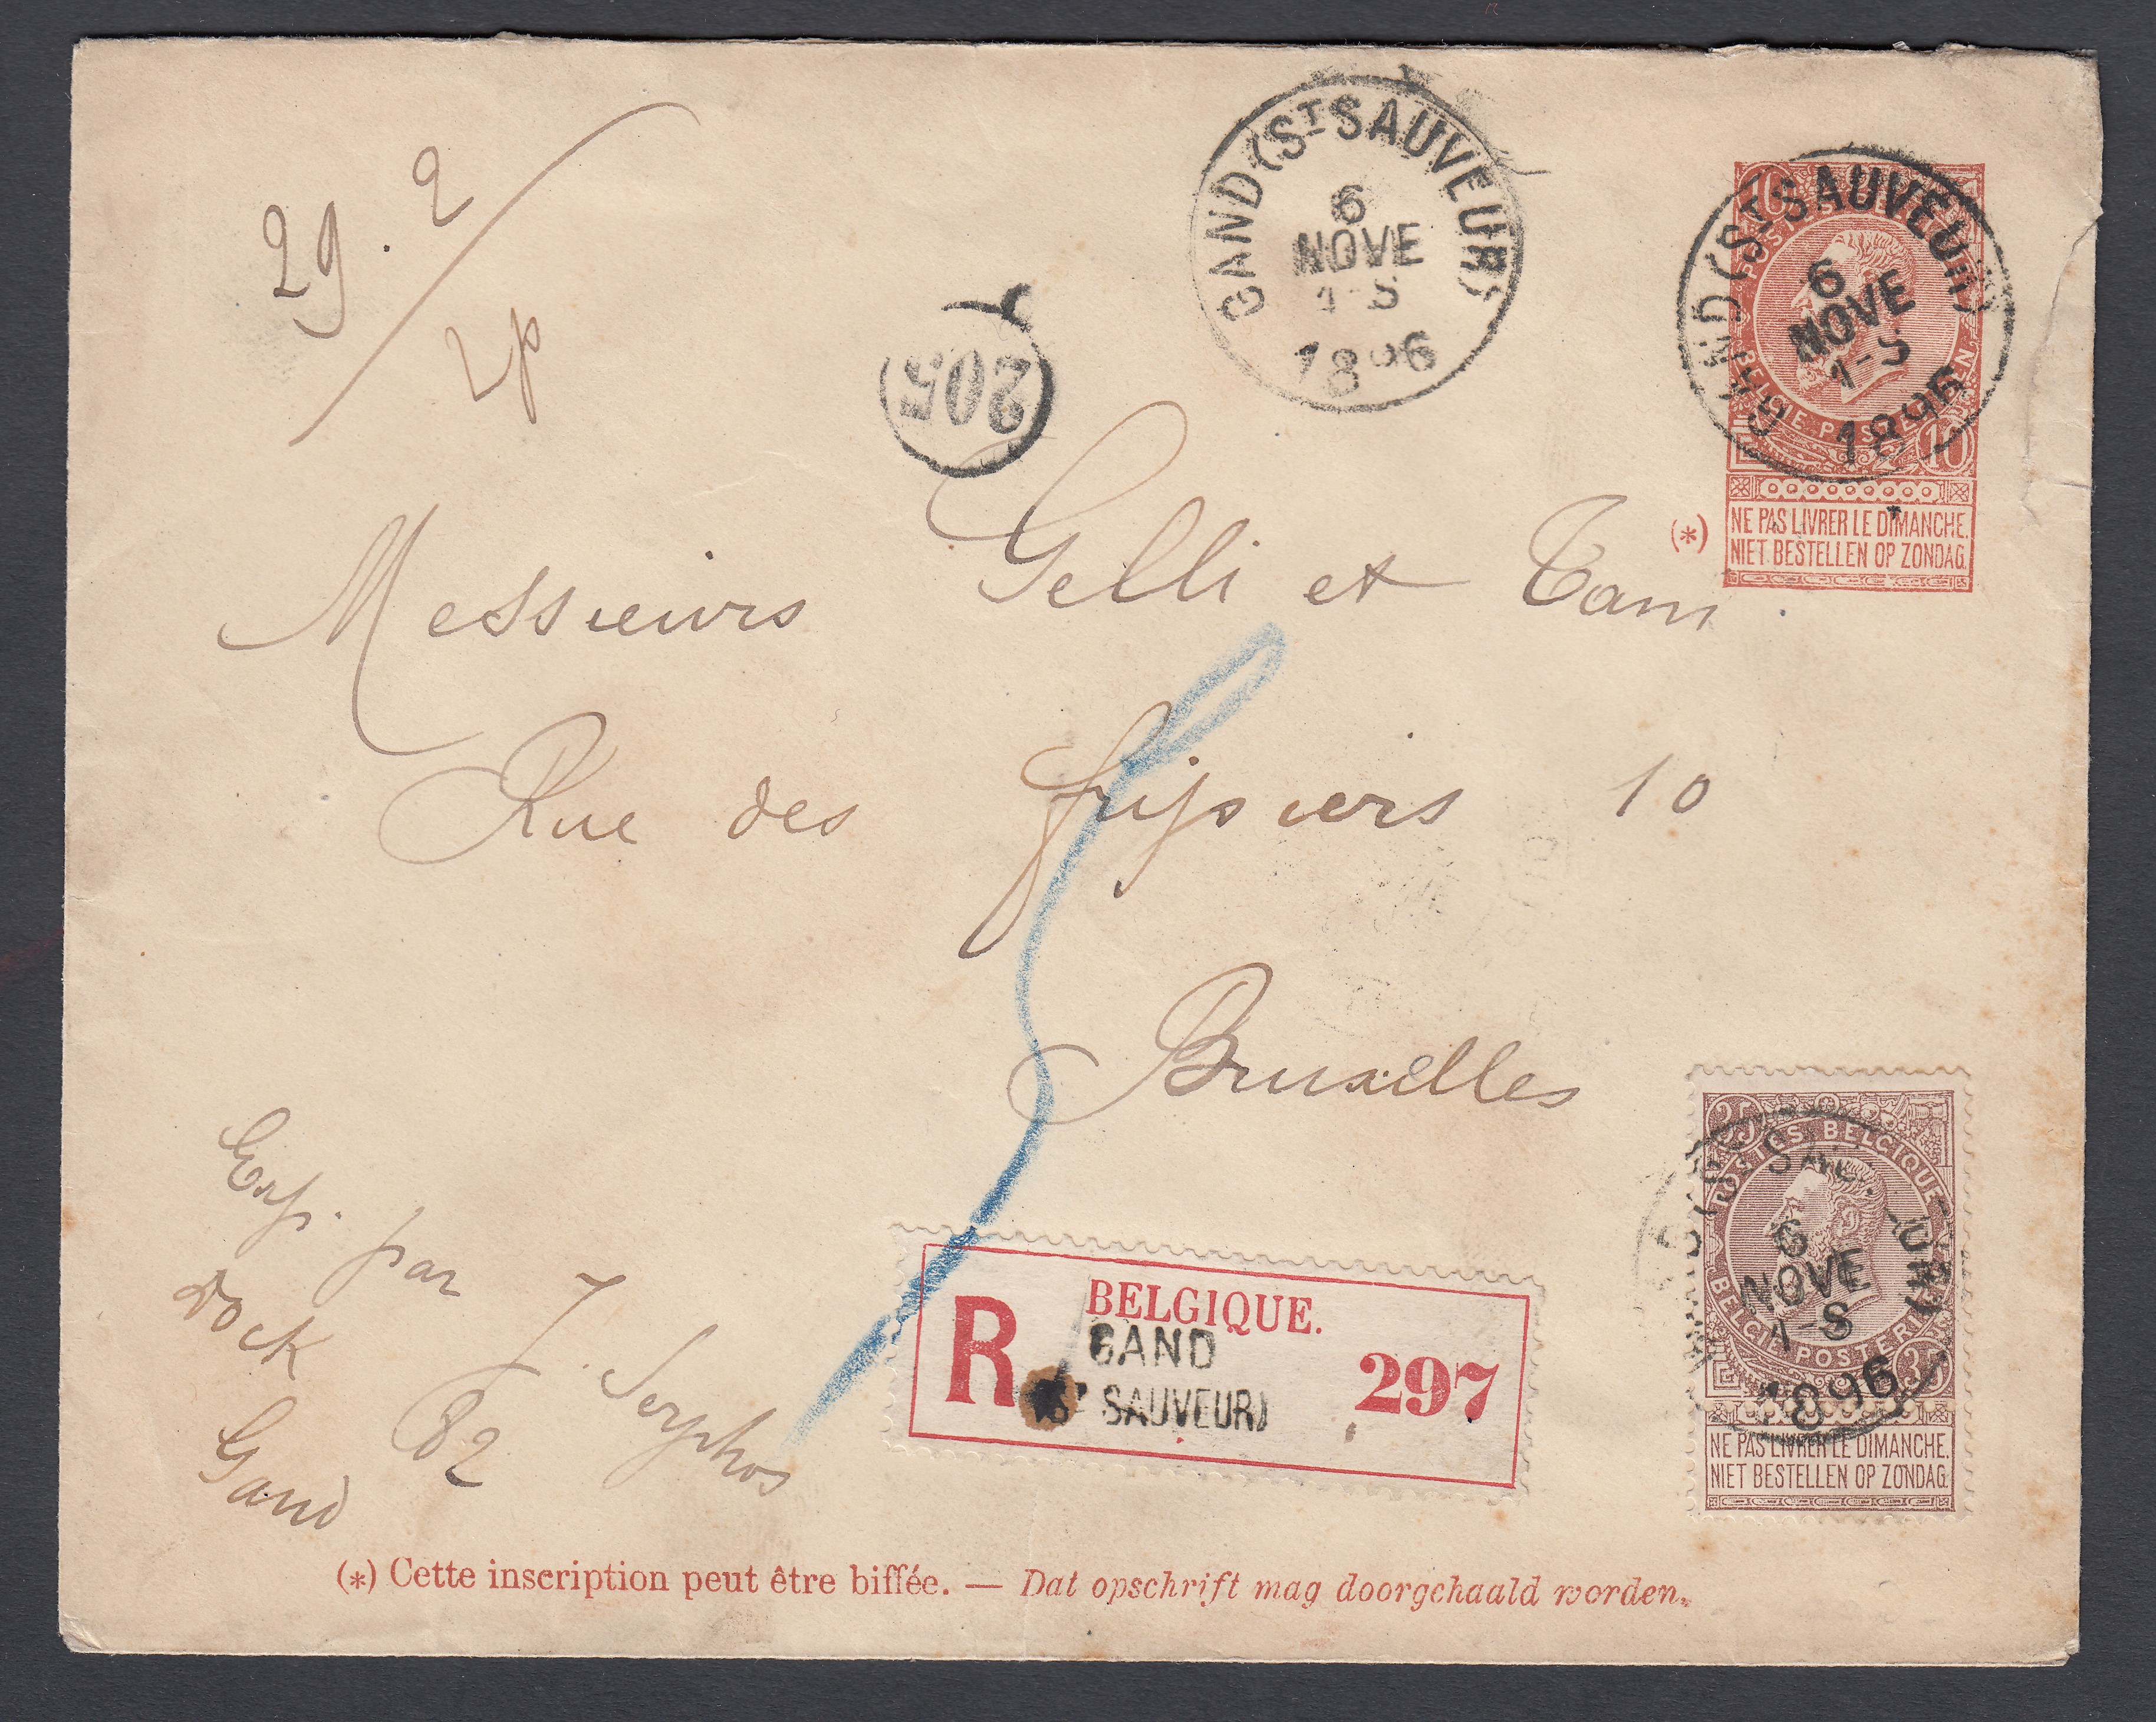 29.2
2p
GAND (ST SAUVEUR)
6
NOVE
1-S
1896
205
10
POSTES
BELGIE POSTERIJEN
10
GAND (ST SAUVEUR)
6
NOVE
1-S
1896
(*)
NE PAS LIVRER LE DIMANCHE.
NIET BESTELLEN OP ZONDAG.
Messieurs Gelli et Tani
Rue des fripiers 10
Bruxelles
Exp. par J. Seryhos
Dock 82
Gand
R
BELGIQUE.
GAND
(ST SAUVEUR)
297
35
POSTES BELGIQUE
BELGIE POSTERIJEN
35
6
NOVE
1-S
1896
NE PAS LIVRER LE DIMANCHE.
NIET BESTELLEN OP ZONDAG.
(*) Cette inscription peut être biffée. — Dat opschrift mag doorgehaald worden.